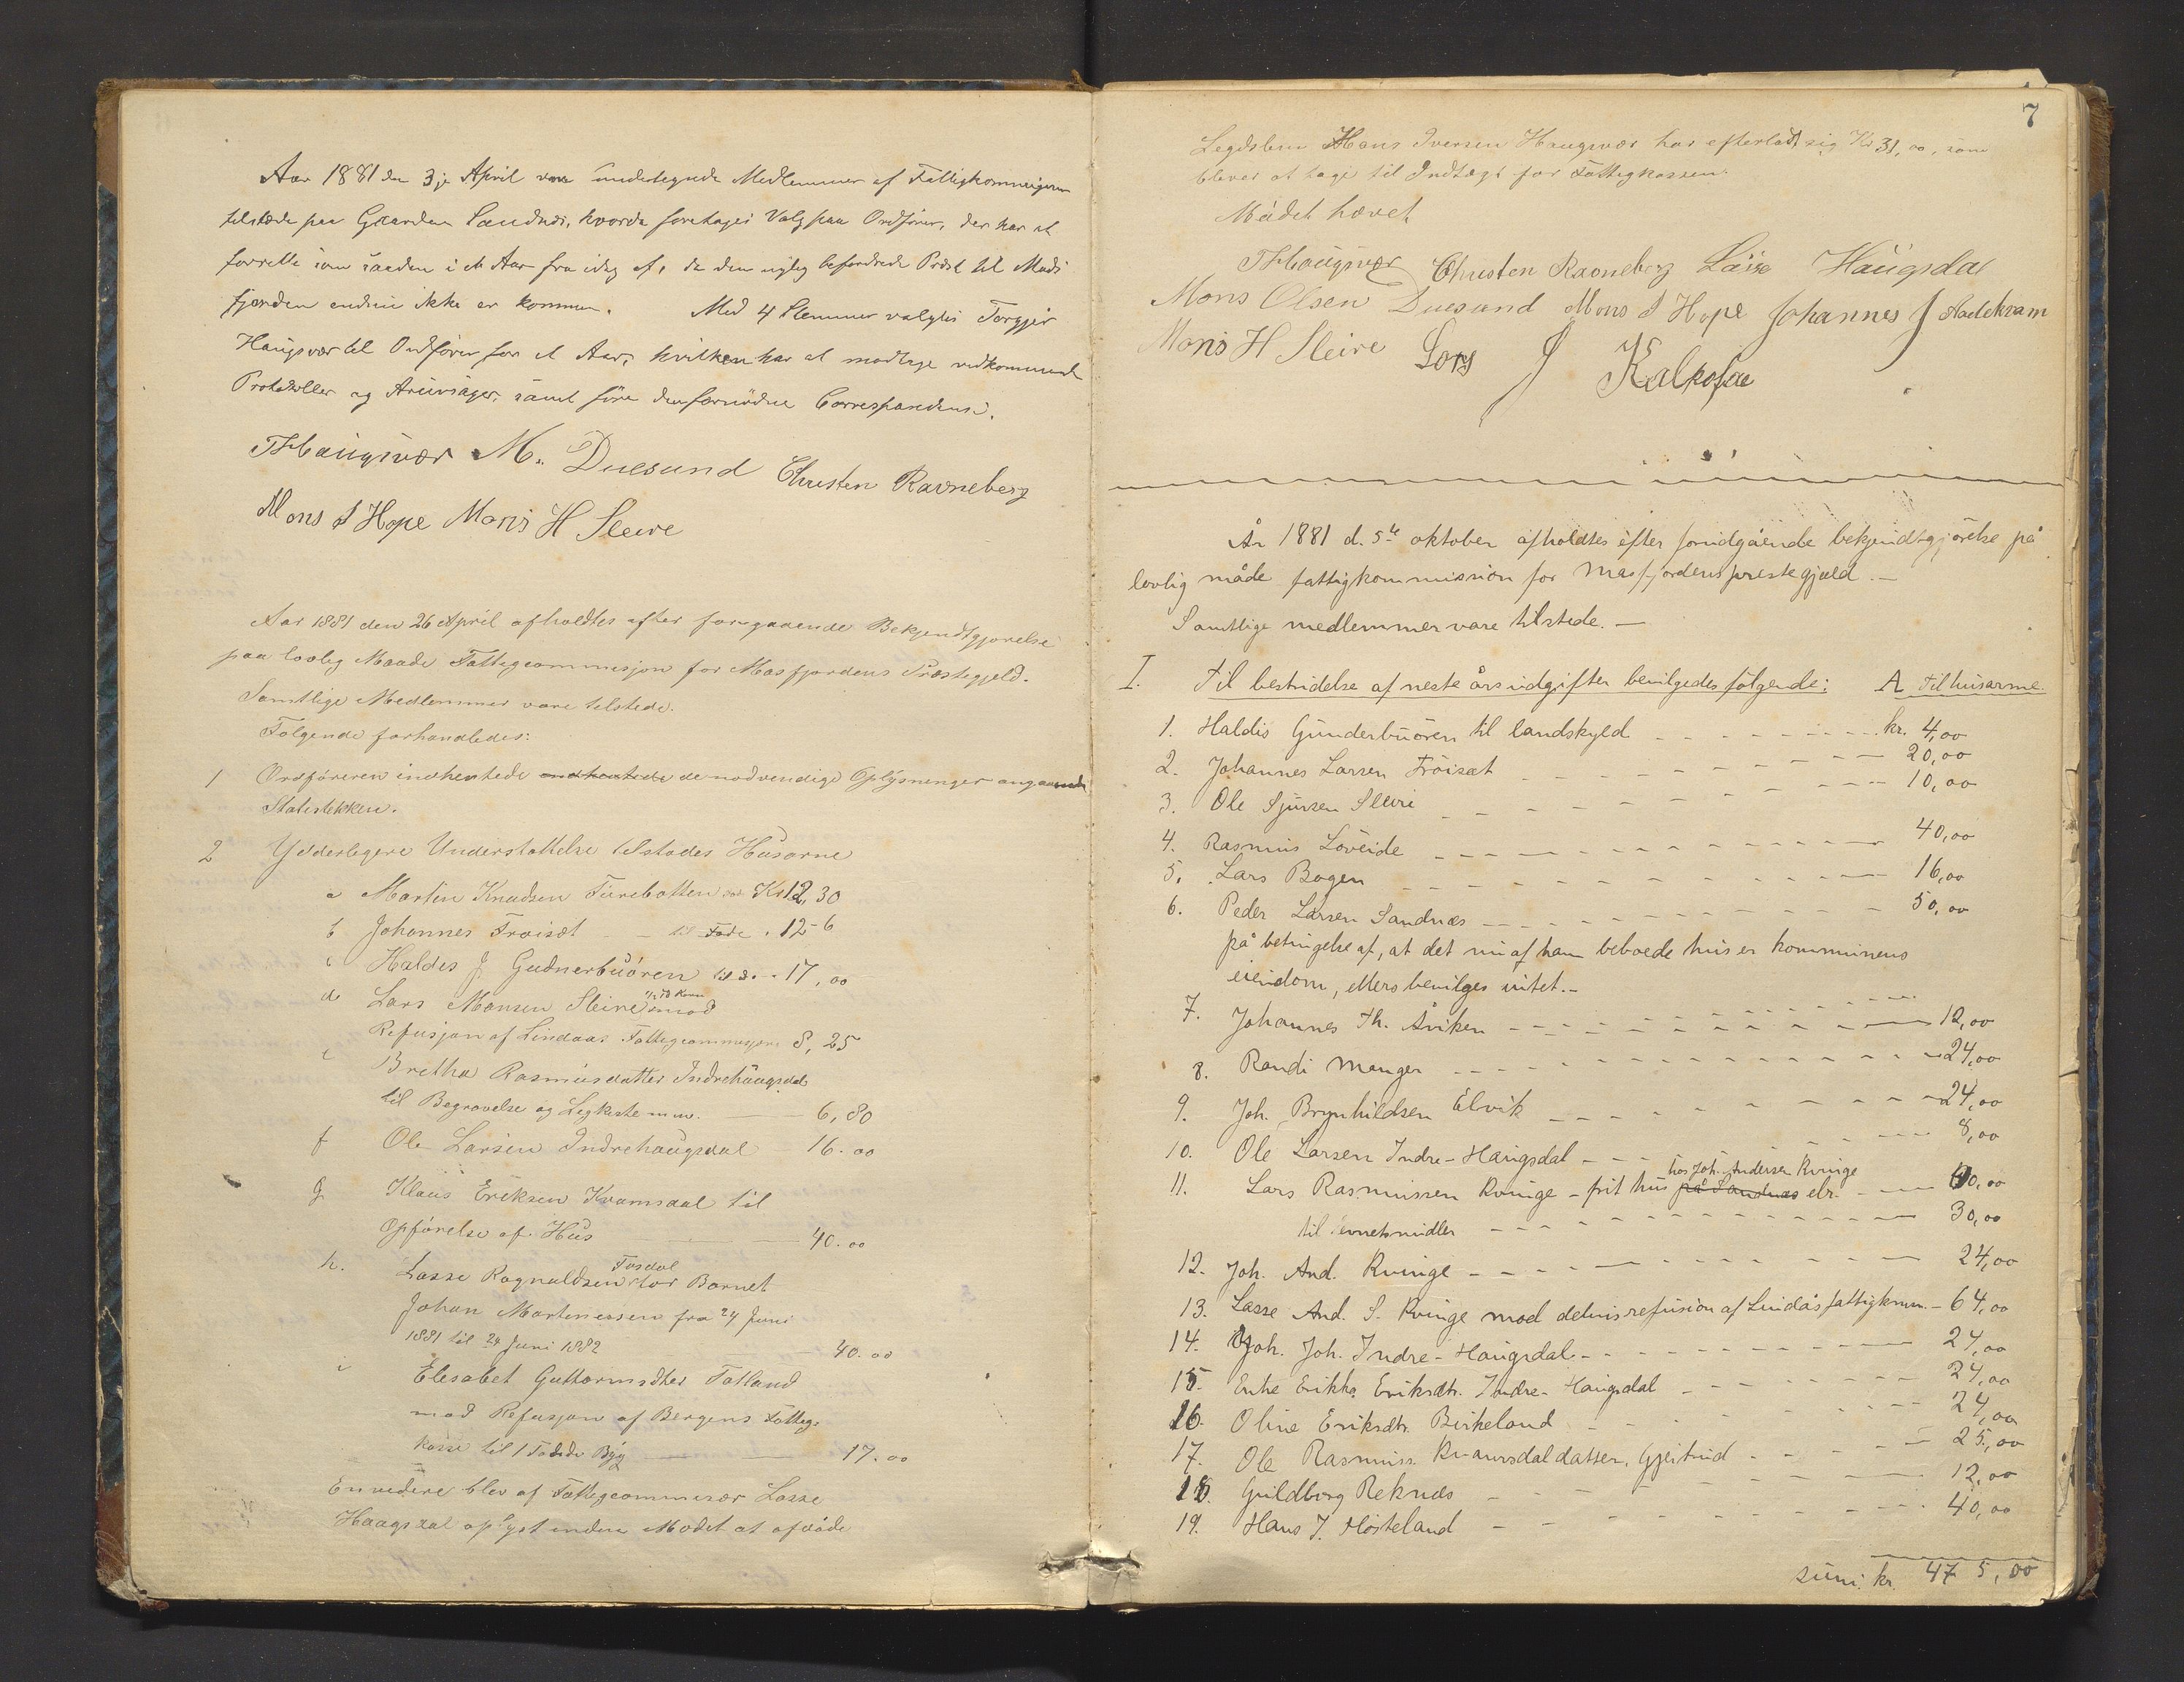 Aar 1881 den 3je April vare undertegnede Medlemmer af Fattigkommisjonen
tilstede paa Gaarden Sandnes, hvorda foretoges Valg paa Ordfører, der har at
forrette som saadan i et Aar fra idag af, da den nylig befordrede Præst til Mads
fjorden endnu ikke er kommen. Med 4 Stemmer valgtes Torgjer
Haugsvær til Ordfører for et Aar, hvilken har at modtage vedkommende
Protokoller og Arcivsager, samt føre den fornødne Correspondense.
THaugsvær M. Duesund Christen Ravneberg
Mons J Hope Mons H Sleire
Aar 1881 den 26 April afholdtes efter foregaaende Bekjendtgjørelse
paa lovlig Maade Fattigcommisjon for Masfjordens Præstegjeld.
Samtlige Medlemmer vare tilstede.
Følgende forhandledes:
1 Ordføreren indhentede indhentede de nødvendige Oplysninger angaaende
Statistikken.
2 Yderligere Understøttelse tilstodes Husarme
a Martin Knudsen Furebotten Kr 12,30
b Johannes Frøiset til Føde 12-6
c Haldis J. Gudnerbuøren 17,00
d Lars Monsen Sleire mod
Refusjon af Lindaas Fattigcommisjon 8,25
e Bretha Rasmusdatter Indrehaugsdal
til Begravelse og Ligkiste m.m. 6,80
f Ole Larsen Indrehaugsdal 16.00
g Klaus Eriksen Kvamsdal til
Opførelse af Hus 40.00
h. Lasse Ragnaldsen Fosdal for Barnet
Johan Martinessen fra 24 Juni
1881 til 24 Juni 1882 40.00
i Elesabet Guttormsdtter Totland
mod Refusjon af Bergens Fattig-
kasse til 1 Tønde Byg 17.00
Envidere blev af Fattigcommisær Lasse
Haugsdal oplyst under Mødet at afdøde
7
Legdslem Hans Iversen Haugsvær har efterladt sig Kr 31,00, som
bliver at tage til Indtægt for Fattigkassen.
Mødet hævet
THaugsvær Christen Ravneberg Lasse Haugsdal
Mons Olsen Duesund Mons J Hope Johannes J Nadekvam
Mons H Sleire Lars J Kalkofae
År 1881 d. 5te oktober afholdtes efter forudgående bekjendtgjørelse på
lovlig måde fattigkommission for Masfjordens prestegjæld.—
Samtlige medlemmer vare tilstede.—
I. Til bestridelse af neste års udgifter bevilgedes følgende: A Til husarme.
1. Haldis Gunderbuøren til landskyld kr. 4,00
2. Johannes Larsen Frøiset 20,00
3. Ole Sjursen Sleire 10,00
4. Rasmus Løveide 40,00
5. Lars Bogen 16,00
6. Peder Larsen Sandnæs 50,00
på betingelse af, at det nu af ham beboede hus er kommunens
eiendom, ellers bevilges intet.—
7. Johannes Th. Åviken 12,00
8. Randi Manger 24,00
9. Joh. Brynhildsen Elvik 24,00
10. Ole Larsen Indre-Haugsdal 8,00
11. Lars Rasmussen Kvinge – frit hus på Sandnæs hos Joh. Andersen Kvinge elr. 40,00
til livnetsmidler 30,00
12. Joh. And. Kvinge 24,00
13. Lasse And. S. Kvinge mod delvis refusion af Lindås fattigkomm. – 64,00
14. Joh. Joh. Indre-Haugsdal 24,00
15. Enke Erikka Eriksdtr. Indre-Haugsdal 24,00
16. Oline Eriksdtr. Birkeland 24,00
17. Ole Rasmuss. Kvamsdal datter, Gjertrud 25,00
18. Guldborg Reknæs 12,00
19. Hans J. Høsteland 40,00
sum. kr. 475,00